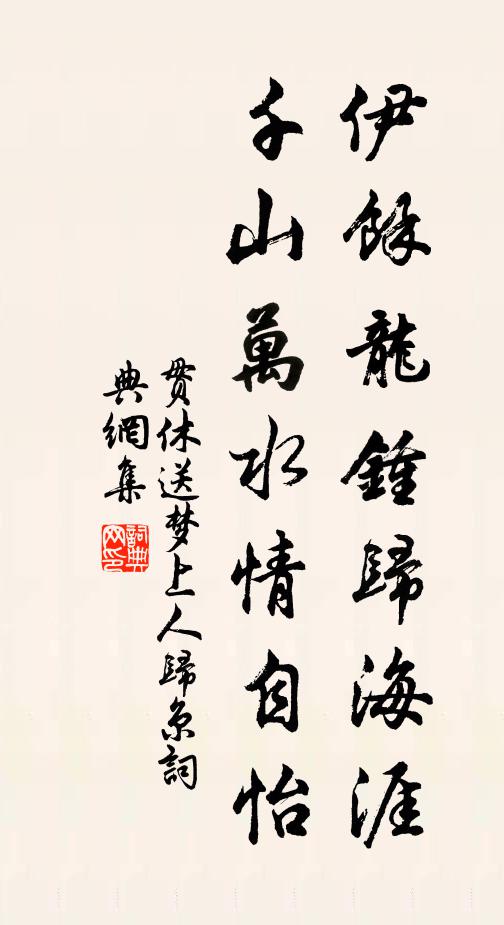 伊餘龍鍾歸海涯
千山萬水情自怡
貫休送梦上人歸京詞
典網集
詞典网印